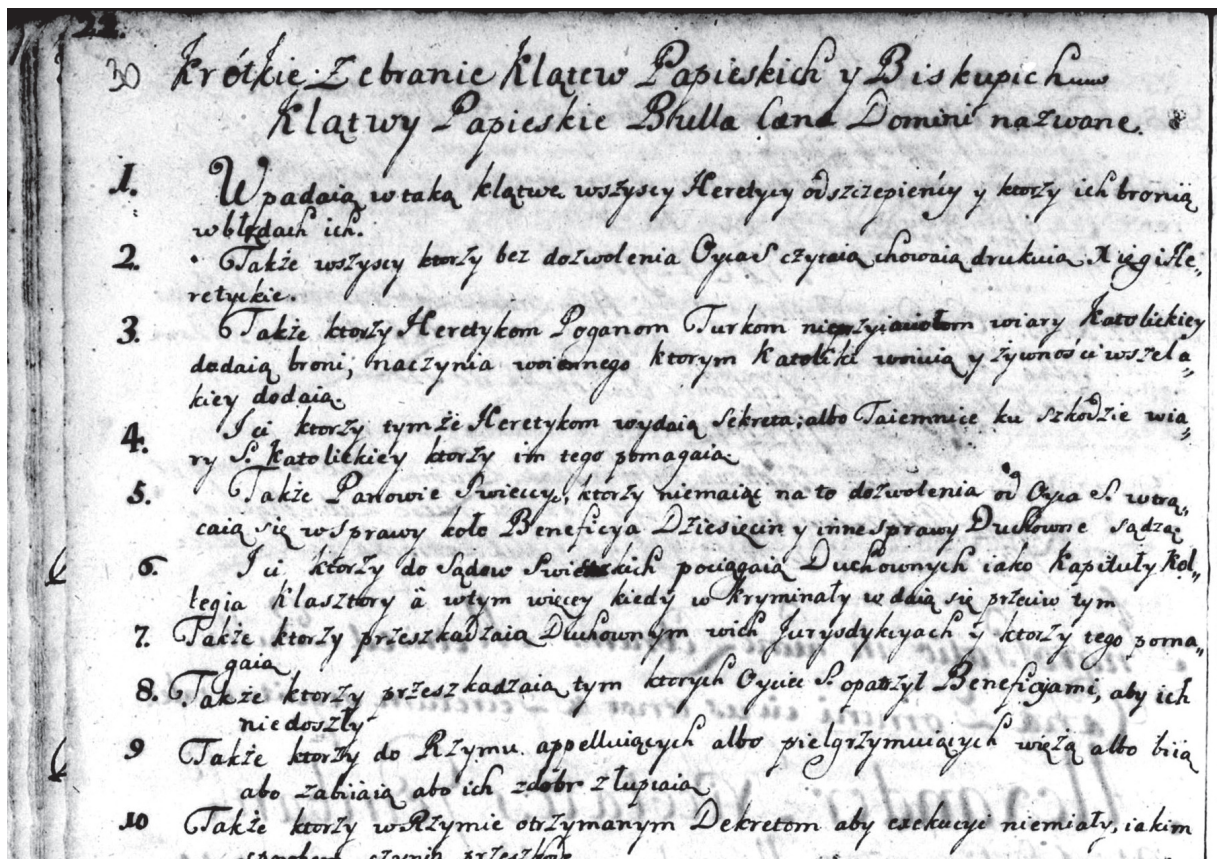 22.
30 Krótkie Zebranie Klątew Papieskich y Biskupich
Klątwy Papieskie Bhulla Cæna Domini nazwane.
1. Wpadaią w taką klątwe wszyscy Heretycy odszczepieńcy y ktorzy ich bronią
w błędach ich.
2. Także wszyscy ktorzy bez dozwolenia Oyca S czytaią chowaią drukuią Xięgi He„
retyckie.
3. Także ktorzy Heretykom Poganom Turkom nieprzyiaciołom wiary Katolickiey
dodaią broni, naczynia woiennego ktorym Katoliki woiuią y żywności wszela„
kiey dodaią.
4. I ci ktorzy tymże Heretykom wydaią Sekreta, albo Taiemnice ku szkodzie wia„
ry S. Katolickiey ktorzy im tego pomagaią.
5. Także Panowie Swieccy, ktorzy niemaiąc na to dozwolenia od Oyca S. wtrą„
caią się w Sprawy koło Beneficya Dziesięcin y inne sprawy Duchowne sądzą
6. I ci ktorzy do Sądow Swieckich pociągaią Duchownych iako Kapituły Kol„
legia Klasztory ä wtym więcey kiedy w kryminały wdaią się przeciw tym
7. Także ktorzy przeszkadzaią Duchownym w ich Jurysdykcyach y ktorzy tego poma„
gaią
8. Także ktorzy przeszkadzaią tym ktorych Oyciec S. opatrzył Beneficjami, aby ich
niedoszły
9 Także ktorzy do Rzymu appelluiących albo pielgrzymuiących więżą albo biią
abo zabiiaią abo ich zdobr złupiaią
10 Także ktorzy w Rzymie otrzymanym Dekretom aby exekucyi niemiały, iakim
sposobem czynią przeszkodę